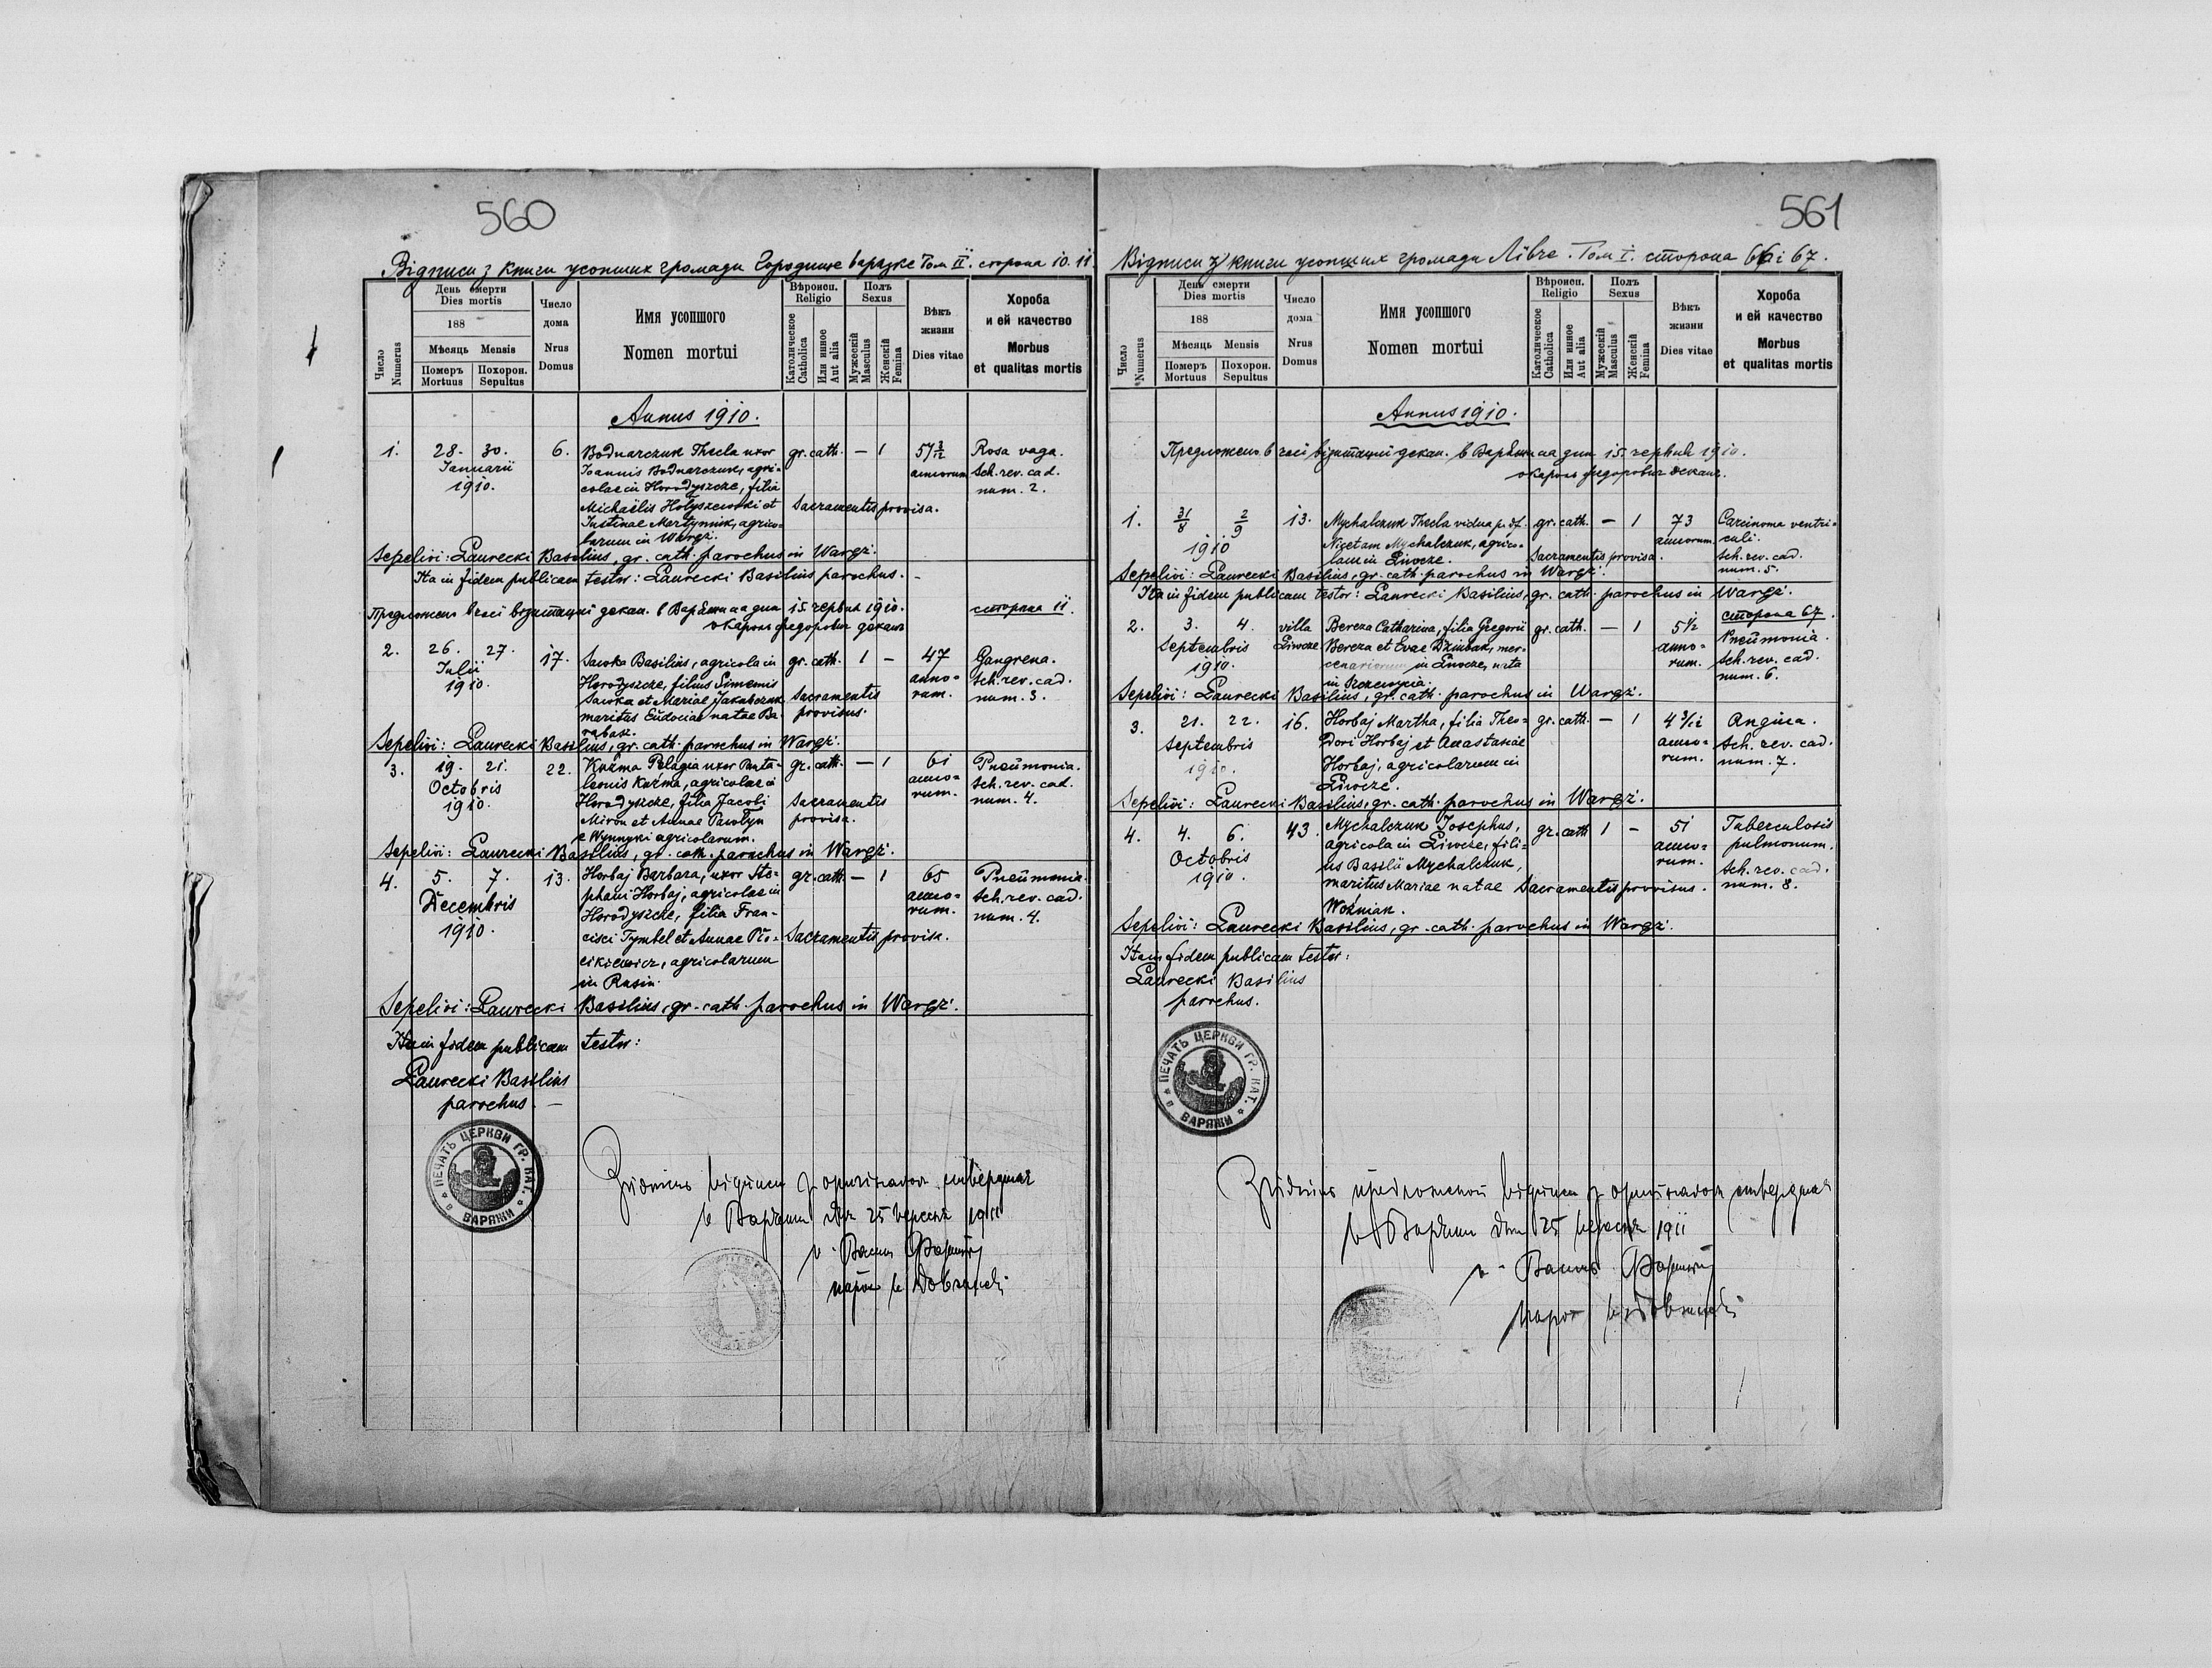 560
Відписи з книги усопших громади Городище варязке Том II. сторона 10. 11.
Число Numerus
День смерти
Dies mortis
188
Мѣсяць Mensis
Померъ Mortuus
Похорон. Sepultus
Число дома
Nrus Domus
Имя усопшого
Nomen mortui
Вѣроисп.
Religio
Католическое Catholica
Или инное Aut alia
Полъ
Sexus
Мужескій Masculus
Женскій Femina
Вѣкъ жизни
Dies vitae
Хороба
и ей качество
Morbus
et qualitas mortis
Annus 1910.
1. 28. 30. 6. Bodnarczuk Thecla uxor gr. cath. — 1 57 3/12 Rosa vaga.
Januarii Joannis Bodnarczuk, agri- annorum Sch. rev. cad.
1910. colae in Horodyszcze, filia num. 2.
Michaëlis Hołyszewski et Sacramentis provisa.
Justinae Martyniuk, agrico-
larum in Waręż.
Sepelivi: Laurecki Basilius, gr. cath. parochus in Waręż.
Ita in fidem publicam testor: Laurecki Basilius parochus.
Предложено в часі візитациї декан. в Варяжи на дни 15. червня 1910. сторона 11.
о Кароль Федорович декан
2. 26. 27. 17. Sawka Basilius, agricola in gr. cath. 1 — 47 Gangrena.
Julii Horodyszcze, filius Simeonis anno- Sch. rev. cad.
1910. Sawka et Mariae Jakubczuk Sacramentis rum. num. 3.
maritus Eudociae natae Ba- provisus.
rabasz.
Sepelivi: Laurecki Basilius, gr. cath. parochus in Waręż.
3. 19. 21. 22. Kuźma Pelagia uxor Panta- gr. cath. — 1 61 Pneumonia.
Octobris leonis Kuźma, agricolae in anno- Sch. rev. cad.
1910. Horodyszcze, filia Jacobi Sacramentis rum. num. 4.
Miron et Annae Pawłyn provisa.
e Wynnyki agricolarum.
Sepelivi: Laurecki Basilius, gr. cath. parochus in Waręż.
4. 5. 7. 13. Horbaj Barbara, uxor Ste- gr. cath. — 1 65 Pneumonia.
Decembris phani Horbaj, agricolae in anno- Sch. rev. cad.
1910. Horodyszcze, filia Fran- rum. num. 4.
cisci Tymbel et Annae Pio- Sacramentis provisa.
cikiewicz, agricolarum
in Rusin.
Sepelivi: Laurecki Basilius, gr. cath. parochus in Waręż.
Ita in fidem publicam testor:
Laurecki Basilius
parochus. —
ПЕЧАТЬ ЦЕРКВИ ГР. КАТ. В ВАРЯЖИ
Згідність відписи з оригіналом стверджає
в Варяжи дня 25 вересня 1911
парох в
561
Відписи з книги усопших громади Лівче. Том I. сторона 66 і 67.
Число Numerus
День смерти
Dies mortis
188
Мѣсяць Mensis
Померъ Mortuus
Похорон. Sepultus
Число дома
Nrus Domus
Имя усопшого
Nomen mortui
Вѣроисп.
Religio
Католическое Catholica
Или инное Aut alia
Полъ
Sexus
Мужескій Masculus
Женскій Femina
Вѣкъ жизни
Dies vitae
Хороба
и ей качество
Morbus
et qualitas mortis
Annus 1910.
Предложено в часі візитациї декан. в Варяжи на дни 15. червня 1910.
о Кароль Федорович декан.
1. 31/8 2/9 13. Mychalczuk Thecla vidua p. df. gr. cath. — 1 73 Carcinoma ventri-
1910 Nicetam Mychalczuk, agrico- annorum. culi.
lam in Liwcze. Sacramentis provisa. Sch. rev. cad.
num. 5.
Sepelivi: Laurecki Basilius, gr. cath. parochus in Waręż.
Ita in fidem publicam testor: Laurecki Basilius, gr. cath. parochus in Waręż.
сторона 67.
2. 3. 4. villa Bereza Catharina, filia Gregorii gr. cath. — 1 5 1/2 Pneumonia.
Septembris Liwcze Bereza et Evae Dziubak, mer- anno- Sch. rev. cad.
1910. cenariorum in Liwcze, nata rum. num. 6.
in
Sepelivi: Laurecki Basilius, gr. cath. parochus in Waręż.
3. 21. 22. 16. Horbaj Martha, filia Theo- gr. cath. — 1 4 3/12 Angina.
Septembris dori Horbaj et Anastasiae anno- Sch. rev. cad.
1910. Horbaj, agricolarum in rum. num. 7.
Liwcze.
Sepelivi: Laurecki Basilius, gr. cath. parochus in Waręż.
4. 4. 6. 43. Mychalczuk Josephus, gr. cath 1 — 51 Tuberculosis
Octobris agricola in Liwcze, fili- anno- pulmonum.
1910. us Basilii Mychalczuk, rum. Sch. rev. cad.
maritus Mariae natae Sacramentis provisus. num. 8.
Woźniak.
Sepelivi: Laurecki Basilius, gr. cath. parochus in Waręż.
Ita in fidem publicam testor:
Laurecki Basilius
parochus.
ПЕЧАТЬ ЦЕРКВИ ГР. КАТ. В ВАРЯЖИ
Згідність предложеної відписи з оригіналом стверджає
в Варяжи дня 25 вересня 1911
парох в